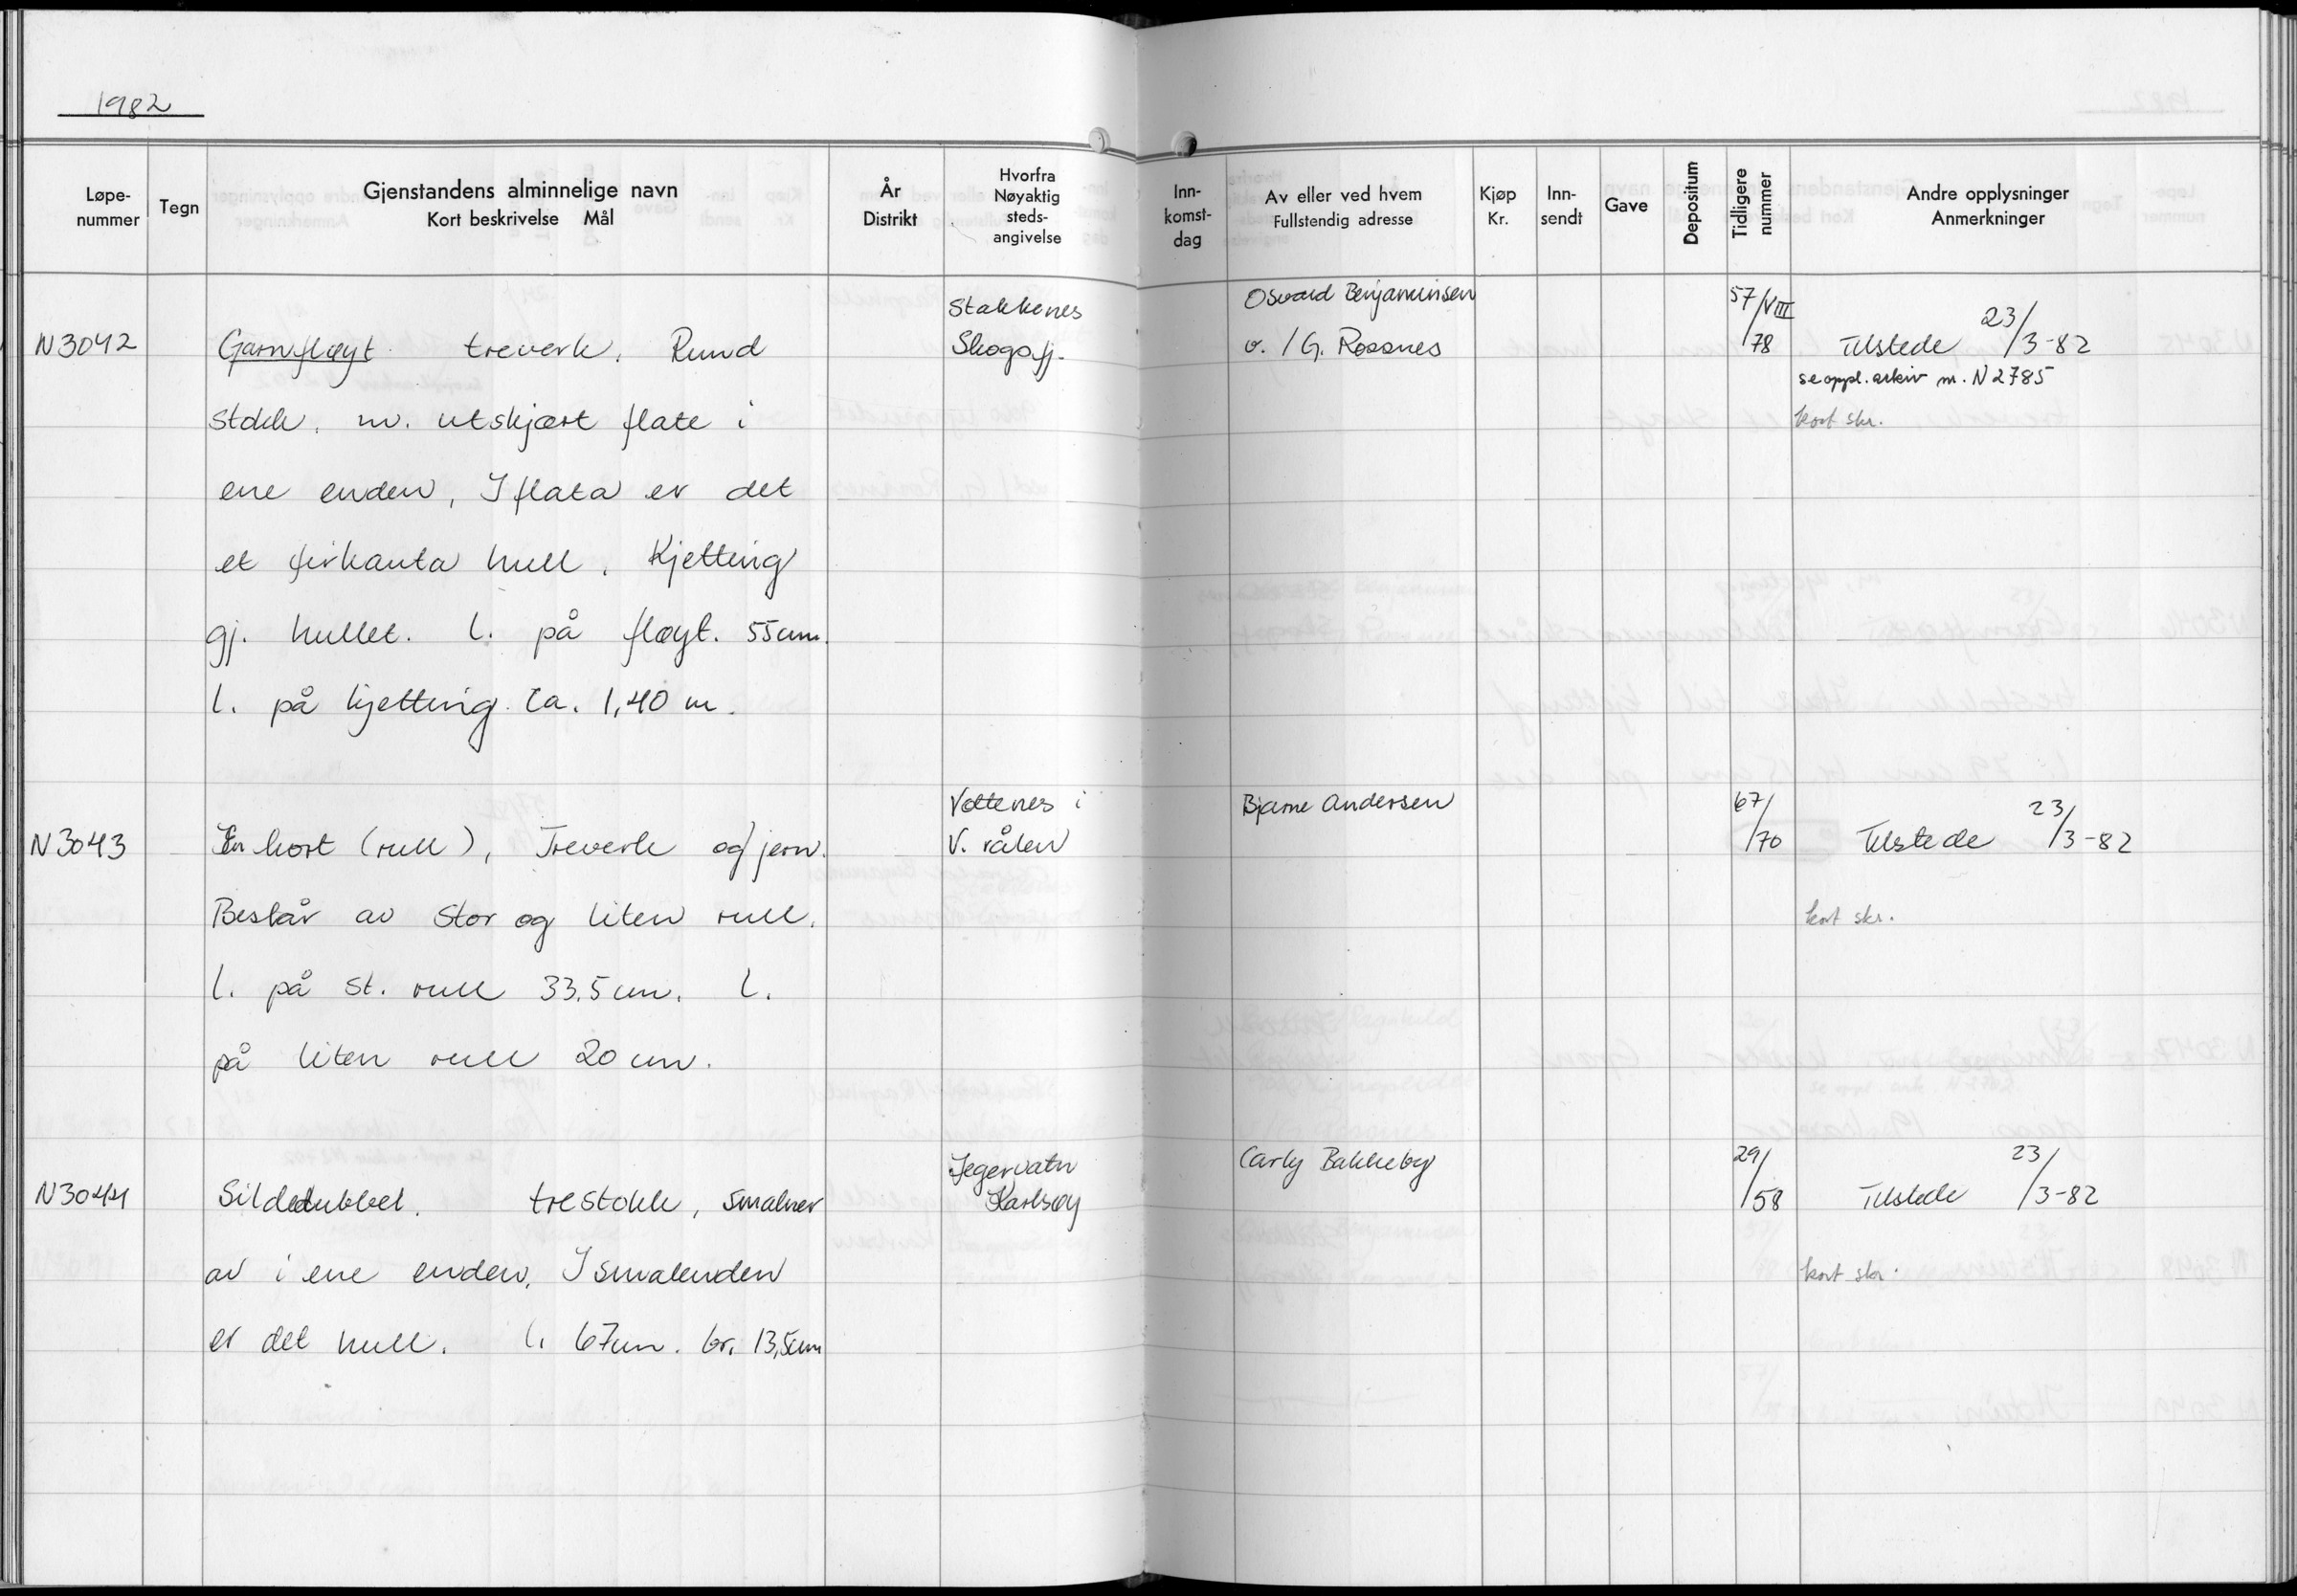 1982
Løpe-nummer
Tegn
Gjenstandens alminnelige navn
Kort beskrivelse Mål
År
Distrikt
Hvorfra
Nøyaktig
steds-
angivelse
Inn-
komst-
dag
Av eller ved hvem
Fullstendig adresse
Kjøp
Kr.
Inn-
sendt
Gave
Depositum
Tidligere
nummer
Andre opplysninger
Anmerkninger
N3042
Garnfløyt treverk. Rund
stokk. m. utskjært flate i
ene enden, I flata er det
et firkanta hull. Kjetting
gj. hullet. l. på fløyt. 55cm.
l. på kjetting. Ca. 1,40 m.
Stakkenes
Skogsfj.
Osvald Benjaminsen
v. / G. Rossnes
57/VIII
/78
Tilstede 23/3-82
se oppl. arkiv nr. N2785
kort skr.
N3043
En kort (rull), Treverk og jern.
Består av stor og liten rull.
l. på st. rull 33,5 cm. l.
på liten rull 20 cm.
Vottenes i
V. rålen
Bjarne Andersen
67/70
Tilstede 23/3-82
kort skr.
N3044
Sildedubbel. trestokk, smalner
av i ene enden, I smalenden
er det hull. l. 67cm. br. 13,5cm
Jegervatn
Karlsøy
Carly Bakkeby
29/58
Tilstede 23/3-82
kort skr.